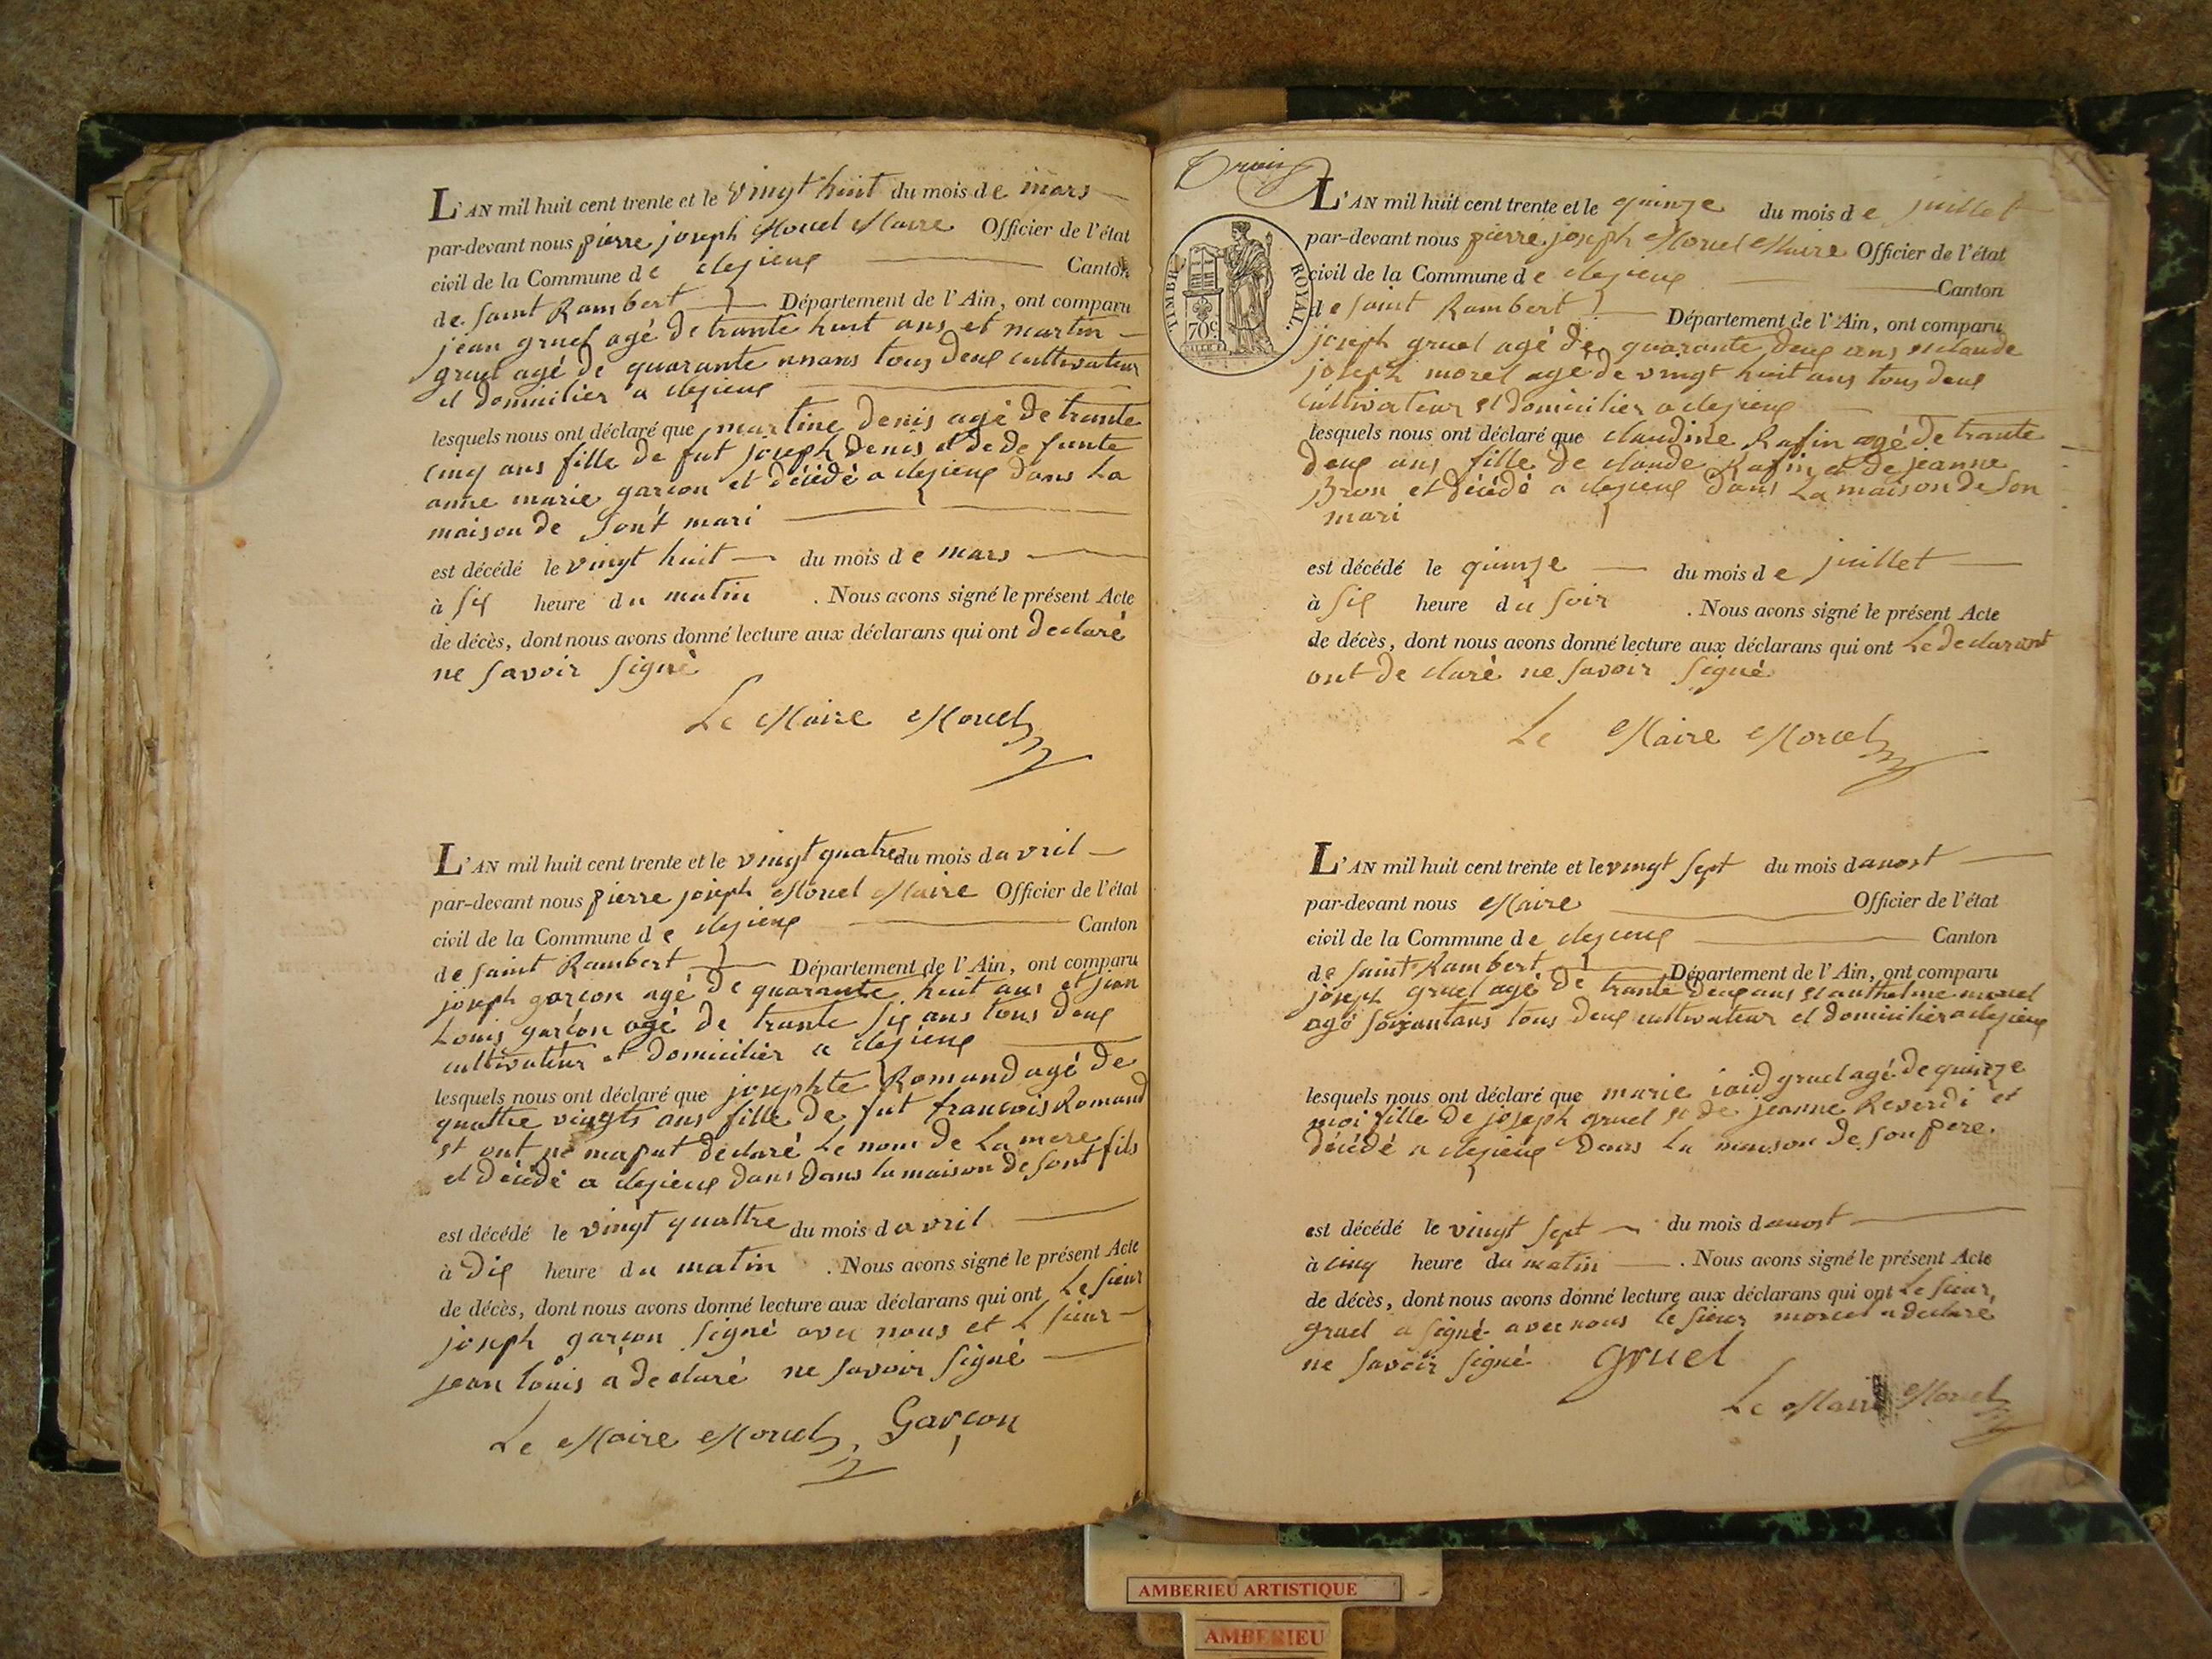 L'AN mil huit cent trente et le vingt huit du mois de mars
par-devant nous pierre joseph Morel Maire Officier de l'état
civil de la Commune de clezieux Canton
de Saint Rambert Département de l'Ain, ont comparu
jean gruel agé de trante huit ans et martin
gruel agé de quarante ans tous deux cultivateur
et domicilier a clezieux
lesquels nous ont déclaré que martine denis agé de trante
cinq ans fille de fut joseph denis et de defunte
anne marie garcon et décédé a clezieux dans La
maison de Sont mari
est décédé le vingt huit du mois de mars
à Six heure du matin . Nous avons signé le présent Acte
de décès, dont nous avons donné lecture aux déclarans qui ont declaré
ne savoir signé
Le Maire Morel
L'AN mil huit cent trente et le vingt quatre du mois d avril
par-devant nous pierre joseph Morel Maire Officier de l'état
civil de la Commune de clezieux Canton
de Saint Rambert Département de l'Ain, ont comparu
joseph garcon agé de quarante huit ans et jean
Louis garcon agé de trante six ans tous deux
cultivateur et domicilier a clezieux
lesquels nous ont déclaré que josephte Romand agé de
quattre vingts ans fille de fut francois Romand
et ont ne maput declaré Le nom de La mere
et décédé a clezieux dans dans la maison de Sont fils
est décédé le vingt quattre du mois d avril
à dix heure du matin . Nous avons signé le présent Acte
de décès, dont nous avons donné lecture aux déclarans qui ont Le sieur
joseph garcon signé avec nous et L sieur
jean Louis a declaré ne savoir signé
Le Maire Morel Garçon
Trois
TIMBRE ROYAL.
70c.
L'AN mil huit cent trente et le quinze du mois de juillet
par-devant nous pierre joseph Morel Maire Officier de l'état
civil de la Commune de clezieux Canton
de Saint Rambert Département de l'Ain, ont comparu
joseph gruel agé de quarante deux ans et claude
joseph morel agé de vingt huit ans tous deux
cultivateur et domicilier a clezieux
lesquels nous ont déclaré que claudine Rafin agé de trante
deux ans fille de claude Rafin et de jeanne
Bron et décédé a clezieux dans La maison de son
mari
est décédé le quinze du mois de juillet
à Six heure du soir . Nous avons signé le présent Acte
de décès, dont nous avons donné lecture aux déclarans qui ont Le declarant
ont de claré ne savoir signé
Le Maire Morel
L'AN mil huit cent trente et le vingt sept du mois d auost
par-devant nous Maire Officier de l'état
civil de la Commune de clezieux Canton
de Saint Rambert Département de l'Ain, ont comparu
joseph gruel agé de trante deux ans et anthelme morel
agé soixantans tous deux cultivateur et domicilier a clezieux
lesquels nous ont déclaré que marie gruel agé de quinze
moi fille de joseph gruel et de jeanne Reverdi et
décédé a clezieux dans La maison de son pere.
est décédé le vingt sept du mois d auost
à cinq heure du matin . Nous avons signé le présent Acte
de décès, dont nous avons donné lecture aux déclarans qui ont Le sieur
gruel a signé avec nous le sieur morel a declare
ne savoir signé gruel
Le Maire Morel
AMBERIEU ARTISTIQUE
AMBERIEU